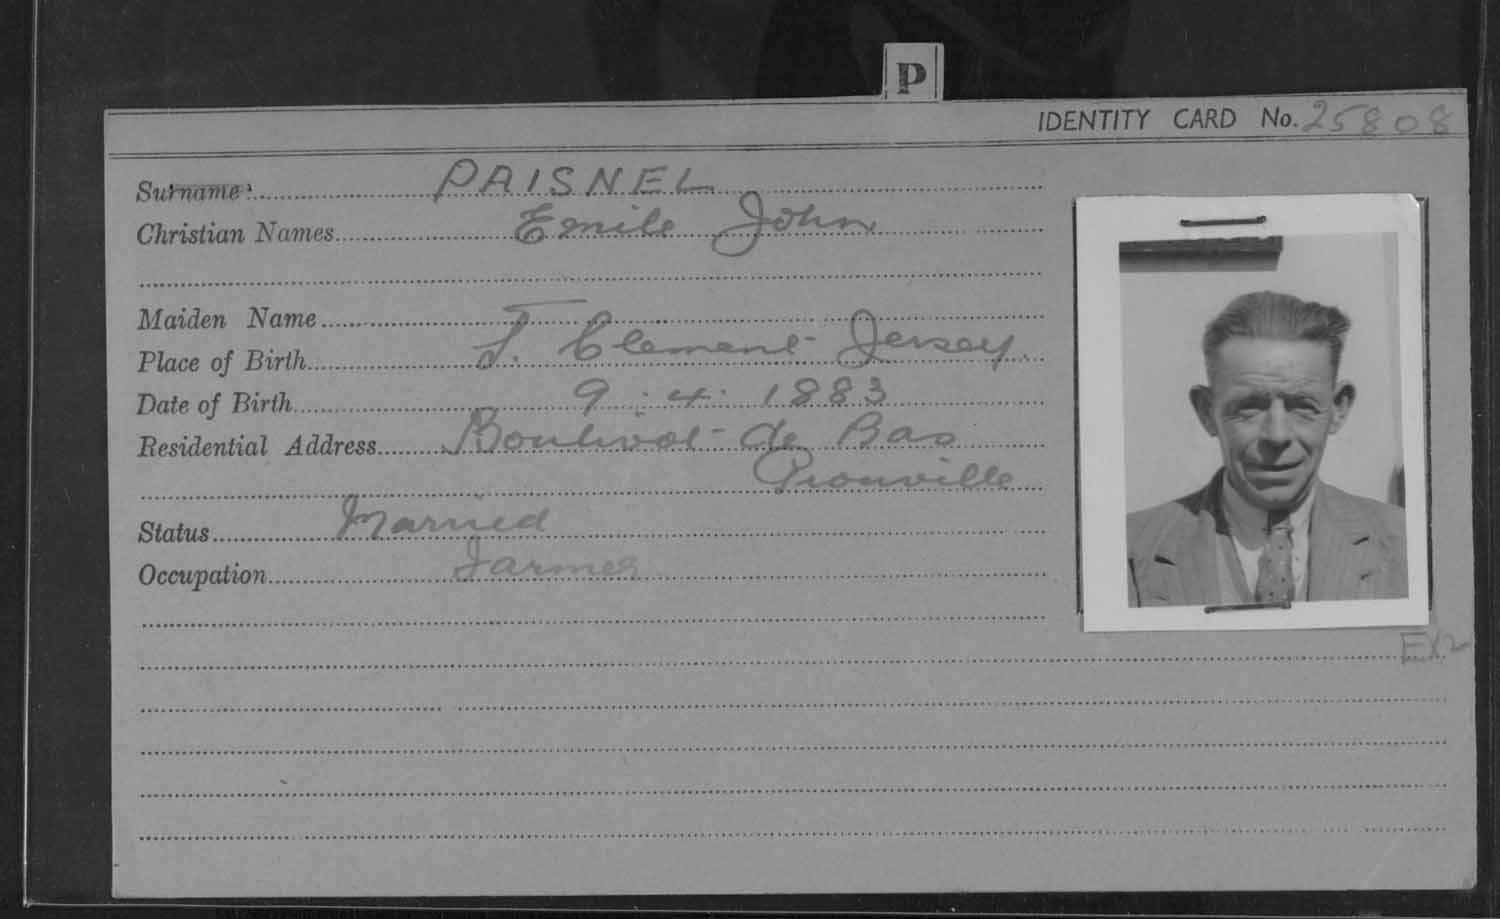 P
IDENTITY CARD No. 25808
Surname: PAISNEL
Christian Names Emile John
Maiden Name
Place of Birth St. Clement Jersey.
Date of Birth 9 : 4 : 1883
Residential Address Boulivot de Bas
Grouville
Status Married
Occupation Farmer
EX2